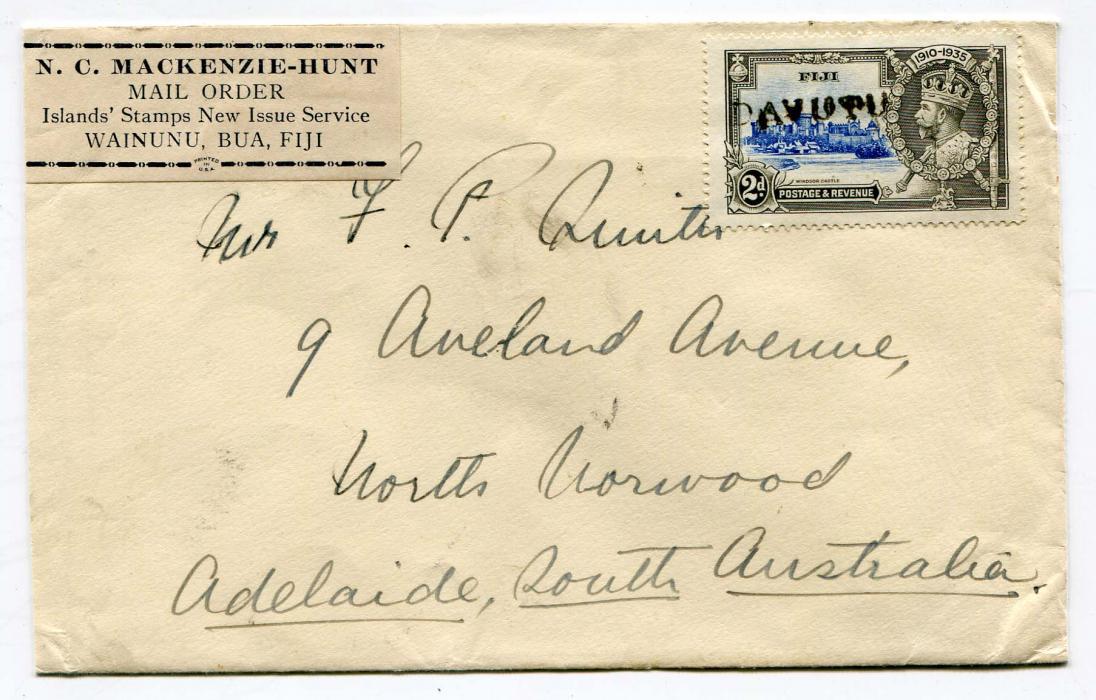 N. C. MACKENZIE-HUNT
MAIL ORDER
Islands' Stamps New Issue Service
WAINUNU, BUA, FIJI
PRINTED
IN
U.S.A.
1910-1935
FIJI
WINDSOR CASTLE
2d.
POSTAGE & REVENUE
Mr F. P.
9 Aveland Avenue,
North Norwood
Adelaide, South Australia.